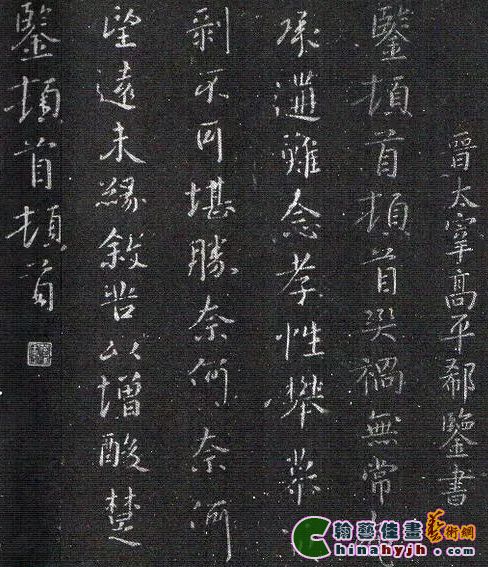 晉太宰高平郗鑒書
鑒頓首頓首災禍無常
承遘難念孝性攀慕
剥不可堪勝奈何奈何
望遠未緣敘苦以增酸楚
鑒頓首頓首
翰藝佳畫藝術網
Chinahyjh.com